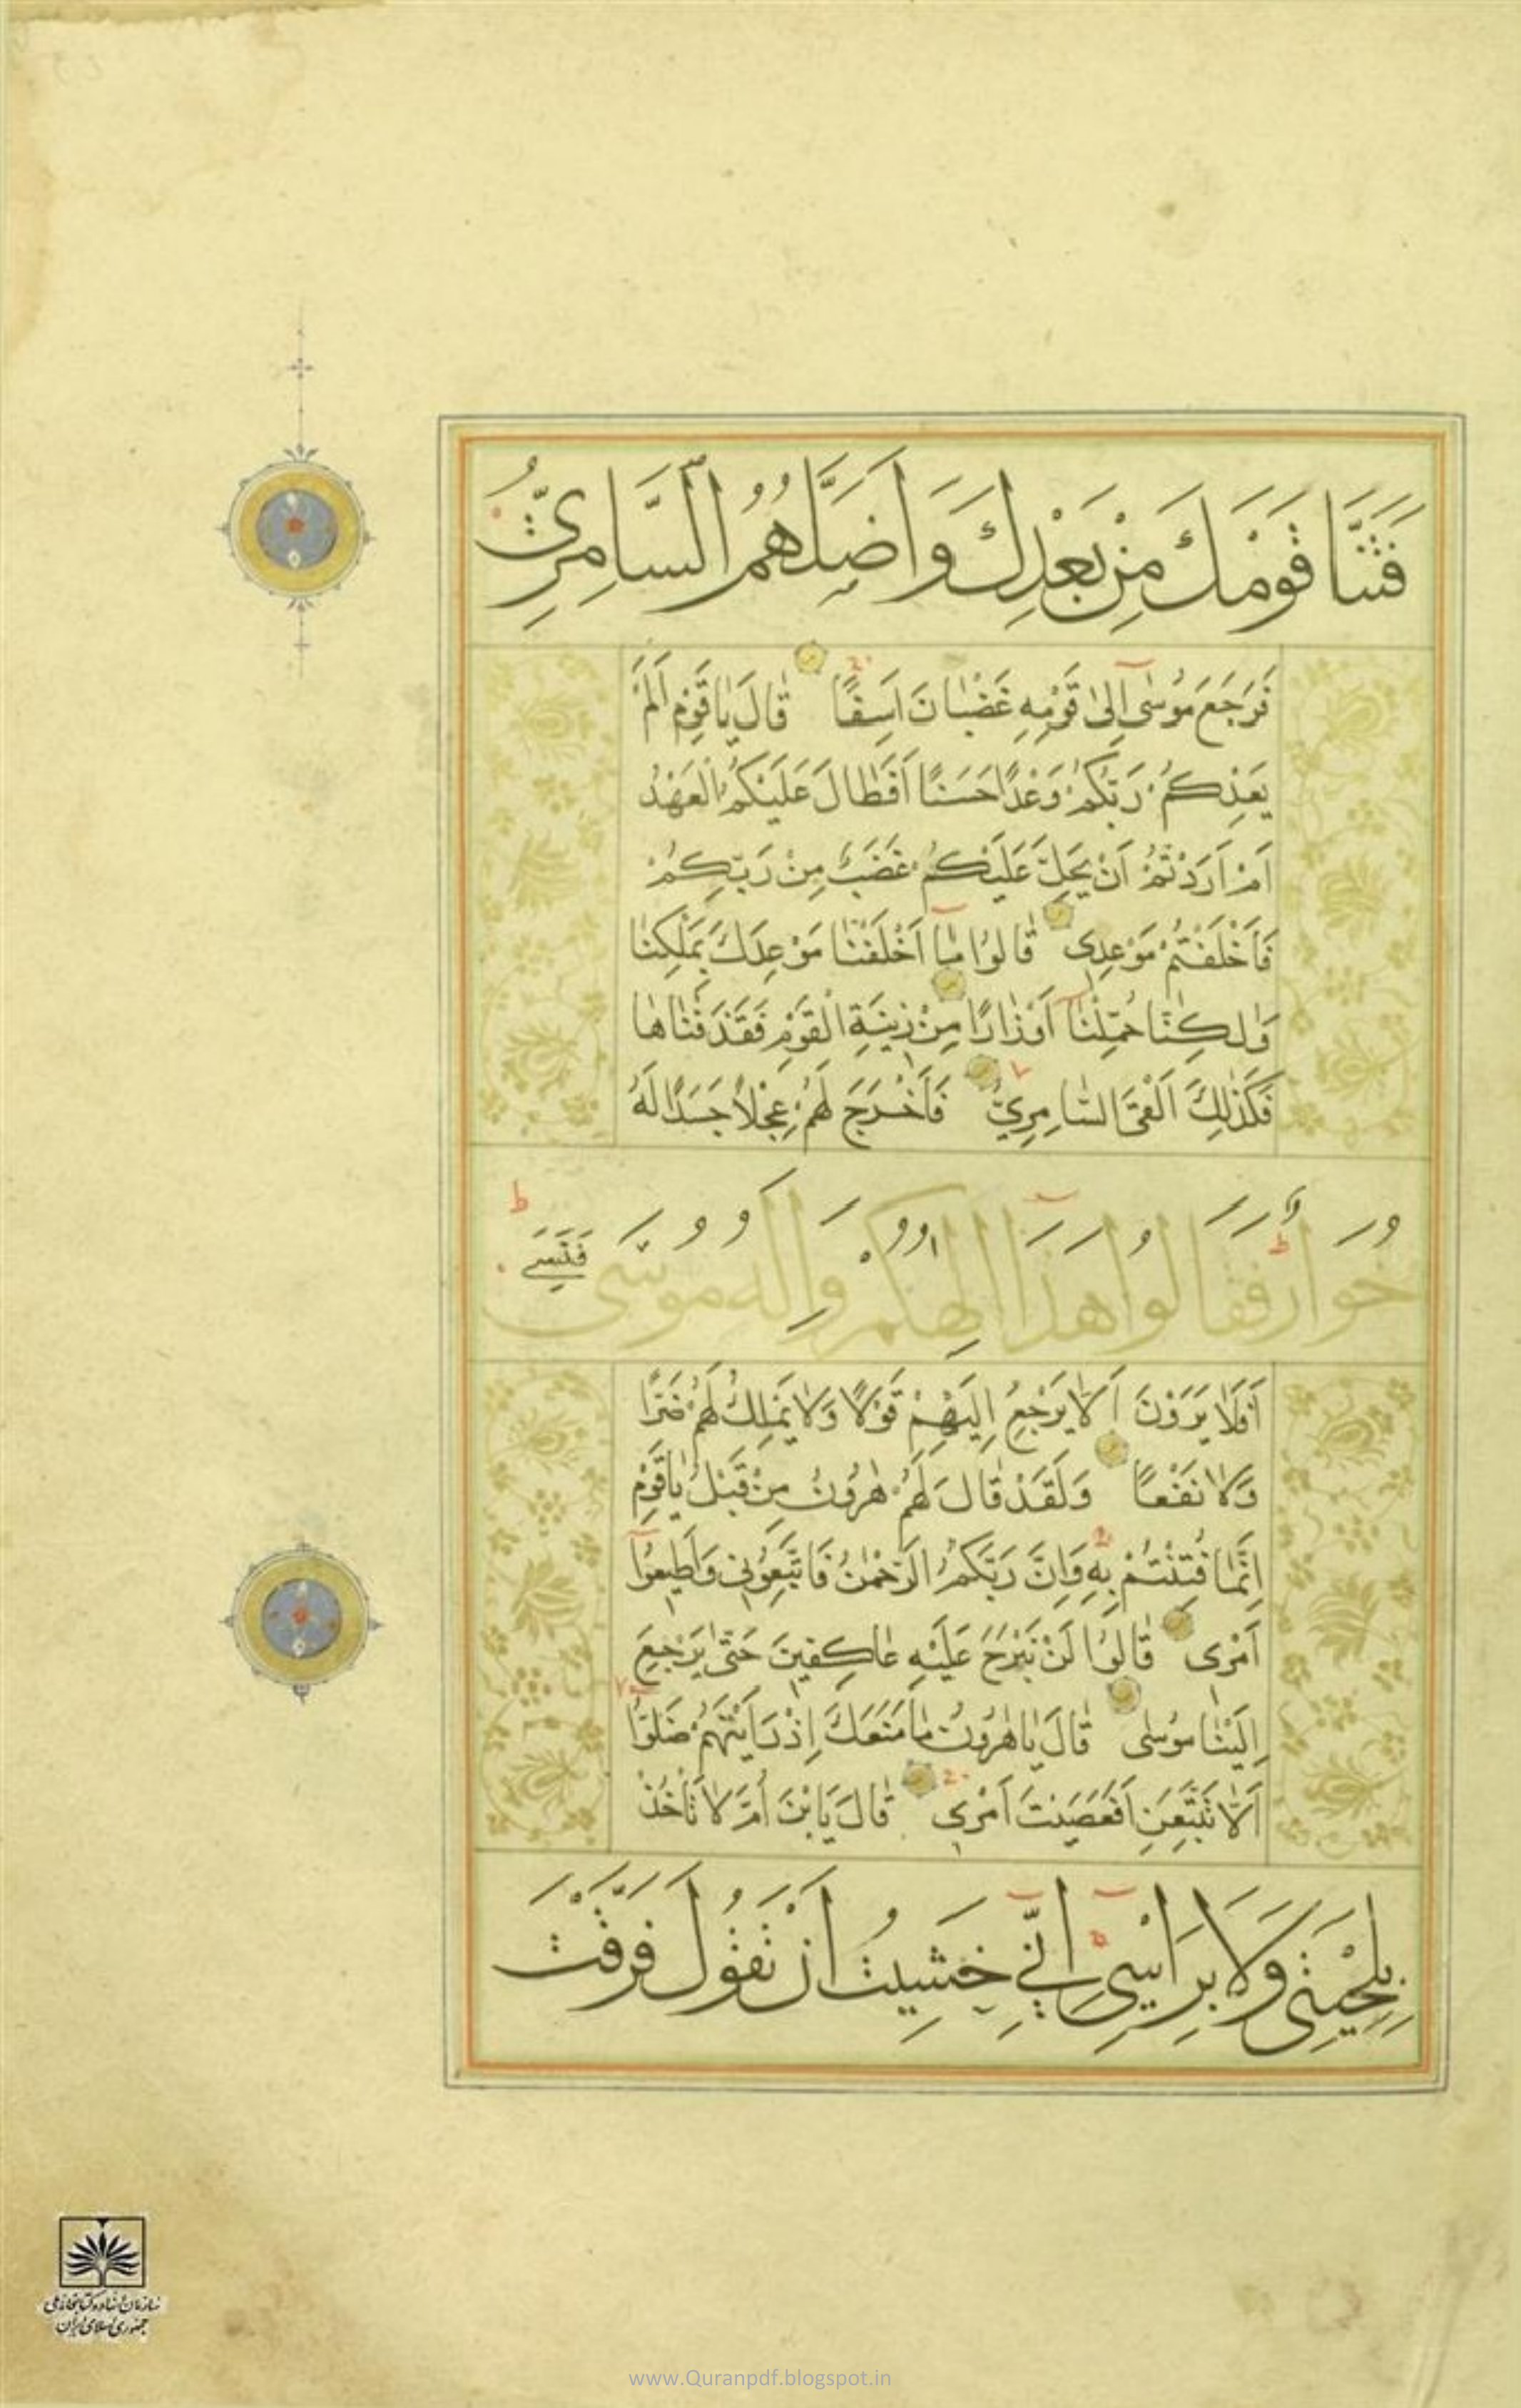 فَتَنَّا قَوْمَكَ مِنْ بَعْدِكَ وَاَضَلَّهُمُ السَّامِرِيُّ
فَرَجَعَ مُوسٰٓى اِلٰى قَوْمِهِ غَضْبٰانَ اَسِفًا قٰالَ يٰاقَوْمِ اَلَمْ
يَعِدْكُمْ رَبُّكُمْ وَعْدًا حَسَنًا اَفَطٰالَ عَلَيْكُمُ الْعَهْدُ
اَمْ اَرَدْتُمْ اَنْ يَحِلَّ عَلَيْكُمْ غَضَبٌ مِنْ رَبِّكُمْ
فَاَخْلَفْتُمْ مَوْعِدِى قٰالُوا مٰٓا اَخْلَفْنٰا مَوْعِدَكَ بِمَلْكِنٰا
وَلٰكِنّٰا حُمِّلْنٰٓا اَوْزٰارًا مِنْ زِينَةِ الْقَوْمِ فَقَذَفْنٰاهٰا
فَكَذٰلِكَ اَلْقَى السّٰامِرِيُّ فَاَخْرَجَ لَهُمْ عِجْلًا جَسَدًا لَهُ
خُوَارٌ فَقَالُوا هَذَآ اِلَهُكُمْ وَاِلَهُ مُوسَى فَنَسِىَ
اَفَلٰا يَرَوْنَ اَلّٰا يَرْجِعُ اِلَيْهِمْ قَوْلًا وَلٰا يَمْلِكُ لَهُمْ ضَرًّا
وَلٰا نَفْعًا وَلَقَدْ قٰالَ لَهُمْ هٰرُونُ مِنْ قَبْلُ يٰاقَوْمِ
اِنَّمٰا فُتِنْتُمْ بِهِ وَاِنَّ رَبَّكُمُ الرَّحْمٰنُ فَاتَّبِعُونِى وَاَطِيعُوٓا
اَمْرِى قٰالُوا لَنْ نَبْرَحَ عَلَيْهِ عٰاكِفِينَ حَتّٰى يَرْجِعَ
اِلَيْنٰا مُوسٰى قٰالَ يٰاهٰرُونُ مٰا مَنَعَكَ اِذْ رَاَيْتَهُمْ ضَلُّوٓا
اَلّٰا تَتَّبِعَنِ اَفَعَصَيْتَ اَمْرِى قٰالَ يَابْنَ اُمَّ لٰا تَاْخُذْ
بِلِحْيَتِى وَلَا بِرَاْسِىٓ اِنِّى خَشِيتُ اَنْ تَقُولَ فَرَّقْتَ
سازمان اسناد و کتابخانه ملی
جمهوری اسلامی ایران
www.Quranpdf.blogspot.in